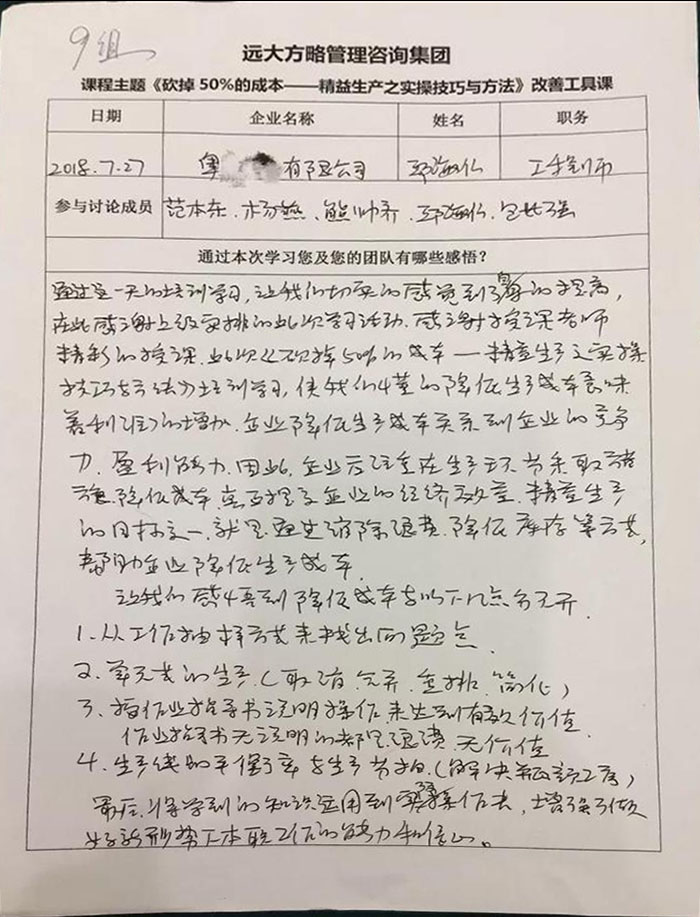 9组
远大方略管理咨询集团
课程主题《砍掉50%的成本——精益生产之实操技巧与方法》改善工具课
日期 企业名称 姓名 职务
2018.7.27 奥 有限公司 邓海仏 工程师
参与讨论成员 范本东、杨燕、熊帅齐、邓海仏、包长强
通过本次学习您及您的团队有哪些感悟?
通过这一天的培训学习,让我们切实的感觉到 的提高,
在此感谢上级安排的此次学习活动.感谢授课老师
精彩的授课.此次《砍掉50%的成本—精益生产之实操
技巧与方法》培训学习,使我们懂的降低生产成本意味
着利润的增加.企业降低生产成本关系到企业的竞争
力.盈利能力.因此,企业应注重在生产环节采取措
施,降低成本,真正提高企业的经济效益.精益生产
的目标之一,就是通过缩除浪费.降低库存等方式,
帮助企业降低生产成本.
让我们感悟到降低成本与以下几点分不开.
1.从工作抽样方式来找出问题点.
2.单元式的生产.(取消.合并.重排.简化)
3.按作业指导书说明操作来达到有效价值.
作业指导书无说明的都是浪费.无价值
4.生产线的平衡率与生产节拍.(解决瓶颈工序)
最后,将学到的知识运用到 操作去,增强了做
好新形势下本职工作的能力和信心。